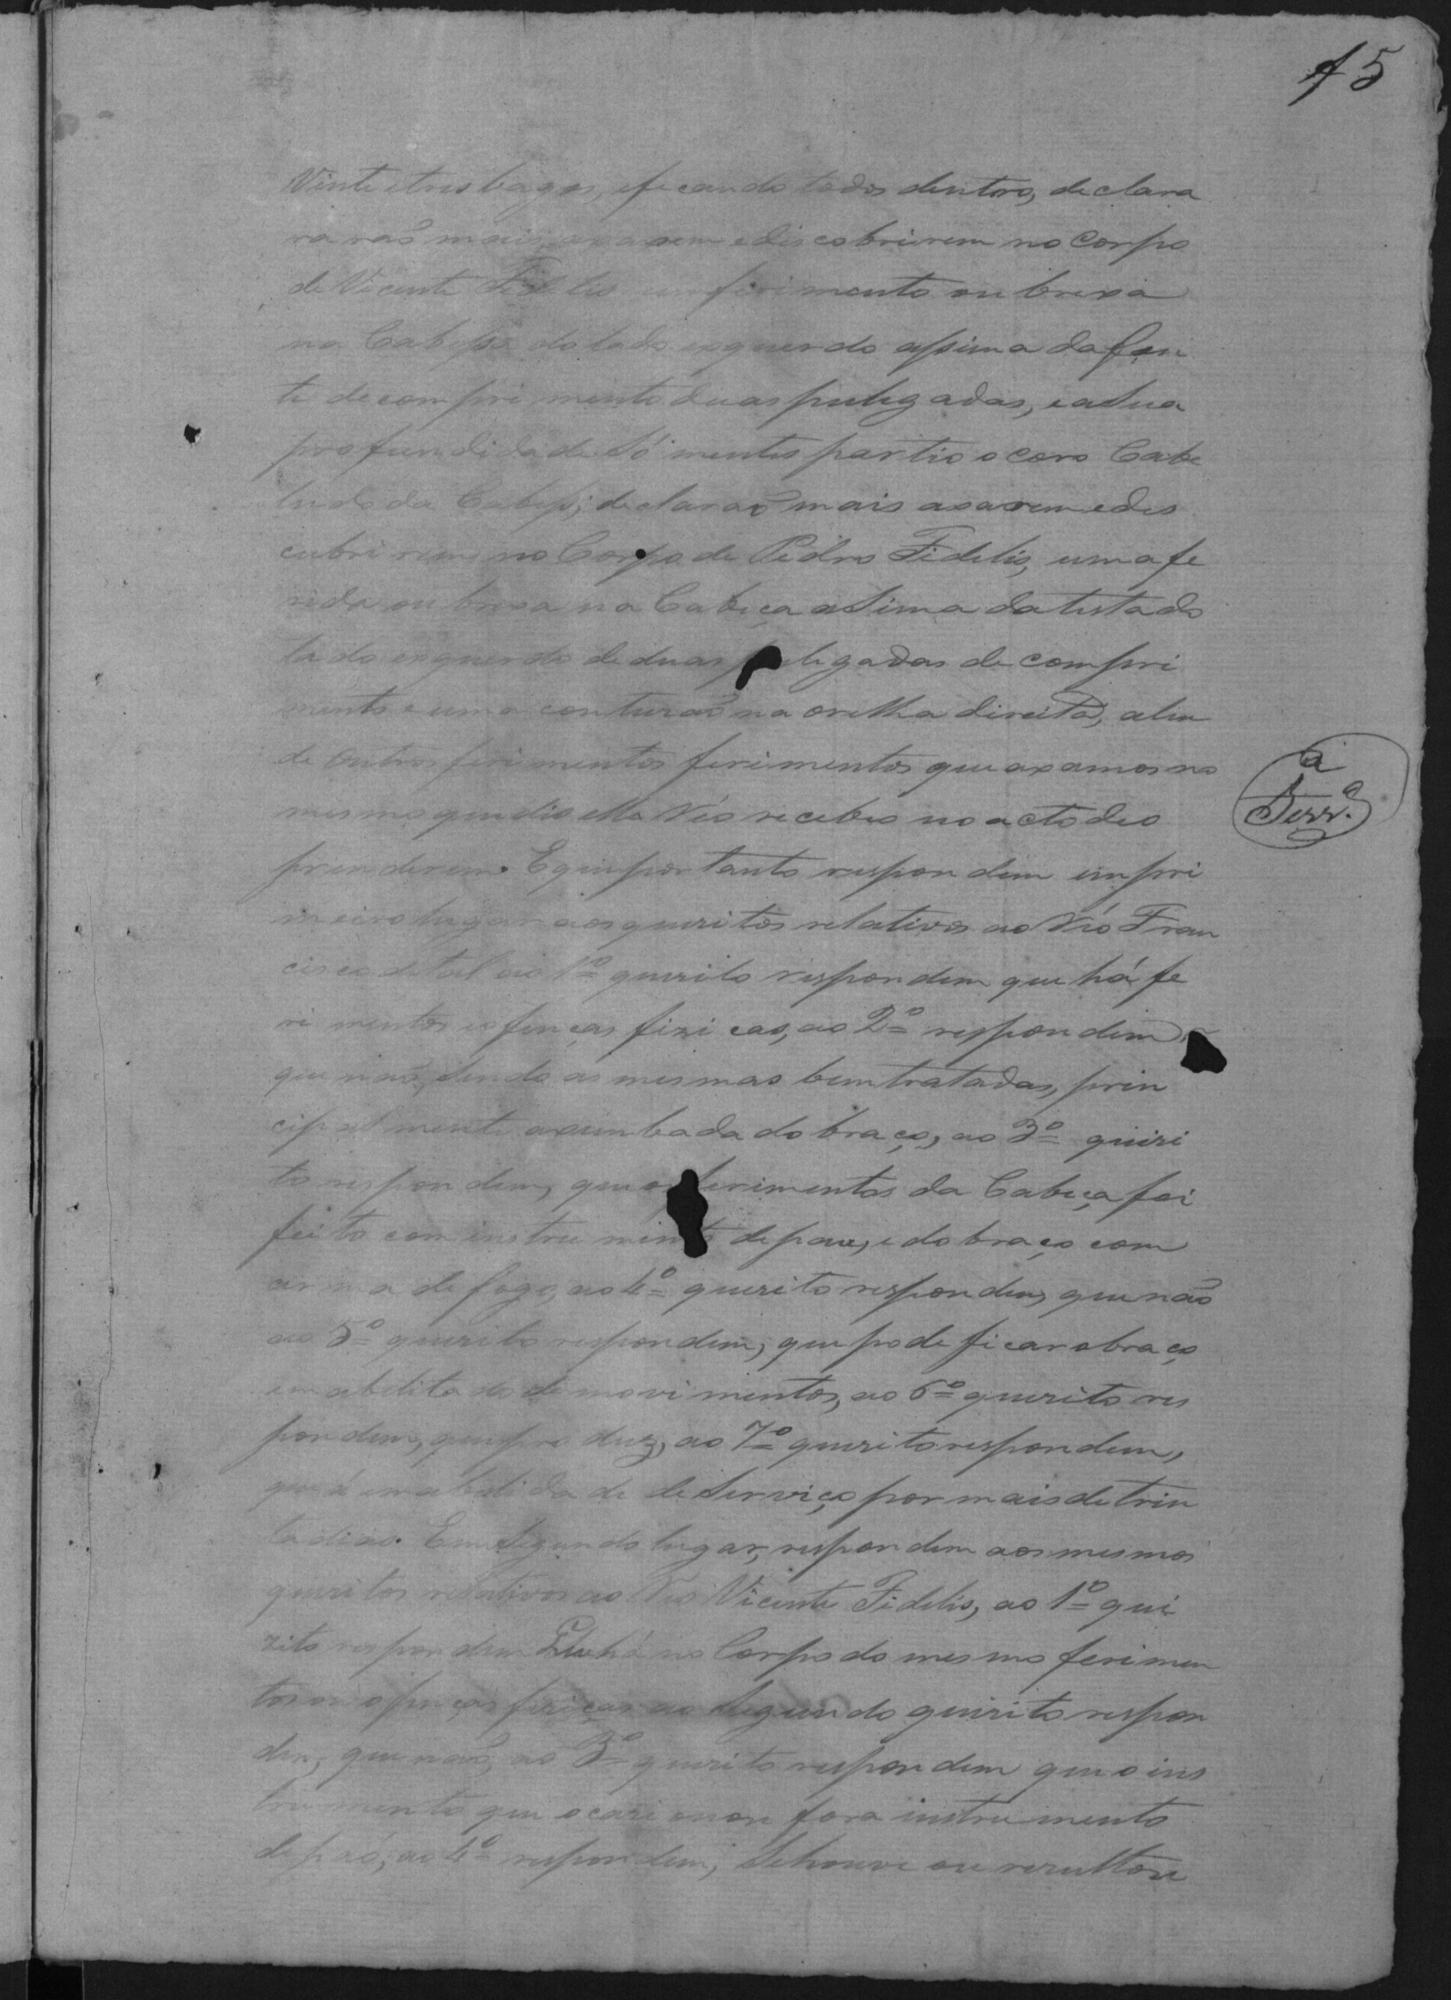 45
Vinte e tres bagos, e ficando todos dentro, declara
rarão mais axarem e discobrirem no Corpo
de Vicente Fidelis um ferimento ou brexa
na Cabessa do lado esquerdo assima da fon
te de comprimento duas pulegadas, e a Sua
profundidade Só mentes partio o coro Cabe
ludo da Cabessa; declarão mais axarem e des
cubrirem no Corpo de Pedro Fidelis, uma fe
rida ou brexa na Cabeça aSima da testa do
lado esquerdo de duas pulegadas de compri
mento e uma contuzão na orelha direita, alem
de outros ferimentos ferimentos que axamos no
mesmo que dis elle Réo recebeo no acto de o
prenderem. E que portanto respondem em pri
meiro lugar aos quizitos relativos ao Réo Fran
cisco de tal ao 1º quizito respondem que há fe
rimentos e ofenças fizicas, ao 2º respondem
que não, Sendo as mesmas bem tratadas, prin
cipalmente axumbada do braço, ao 3º quizi
to respondem, que o ferimentos da Cabeça foi
feito com instrumento de pau, e do braço com
arma de fogo, ao 4º quezito respondem, que não
ao 5º quezito respondem, que pode ficar o braço
inabelitado de movimentos, ao 6º quezito res
pondem, que produz, ao 7º quezito respondem,
que é inabelidade de Serviço por mais de trin
ta dias. Em Segundo lugar, respondem aos mesmos
quezitos relativos ao Réo Vicente Fidelis, ao 1º qui
zito respondem Que há no Corpo do mesmo ferimen
tos ou ofenças fizicas ao Segundo quizito respon
dem, que não, ao 3º quezito respondem que o ins
trumento que ocazionou fora instrumento
de páo, ao 4º respondem, Se houve ou rezultou
a
Bezr.ª